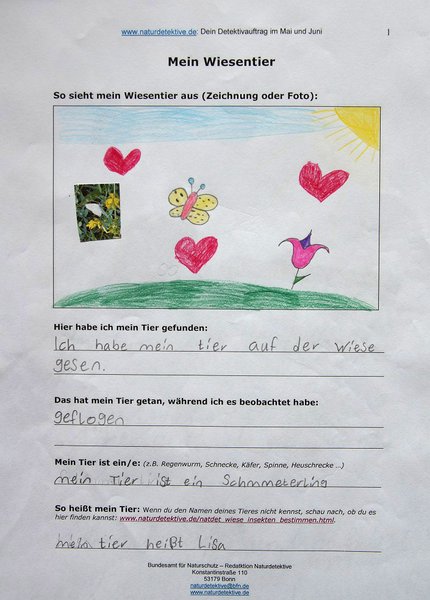 www.naturdetektive.de: Dein Detektivauftrag im Mai und Juni
Mein Wiesentier
So sieht mein Wiesentier aus (Zeichnung oder Foto):
Hier habe ich mein Tier gefunden:
Ich habe mein tier auf der Wiese
gesen.
Das hat mein Tier getan, während ich es beobachtet habe:
geflogen
Mein Tier ist ein/e: (z.B. Regenwurm, Schnecke, Käfer, Spinne, Heuschrecke …)
mein Tier ist ein Schmmeterling
So heißt mein Tier: Wenn du den Namen deines Tieres nicht kennst, schau nach, ob du es
hier finden kannst: www.naturdetektive.de/natdet_wiese_insekten_bestimmen.html.
mein tier heißt Lisa
Bundesamt für Naturschutz – Redaktion Naturdetektive
Konstantinstraße 110
53179 Bonn
naturdetektive@bfn.de
www.naturdetektive.de